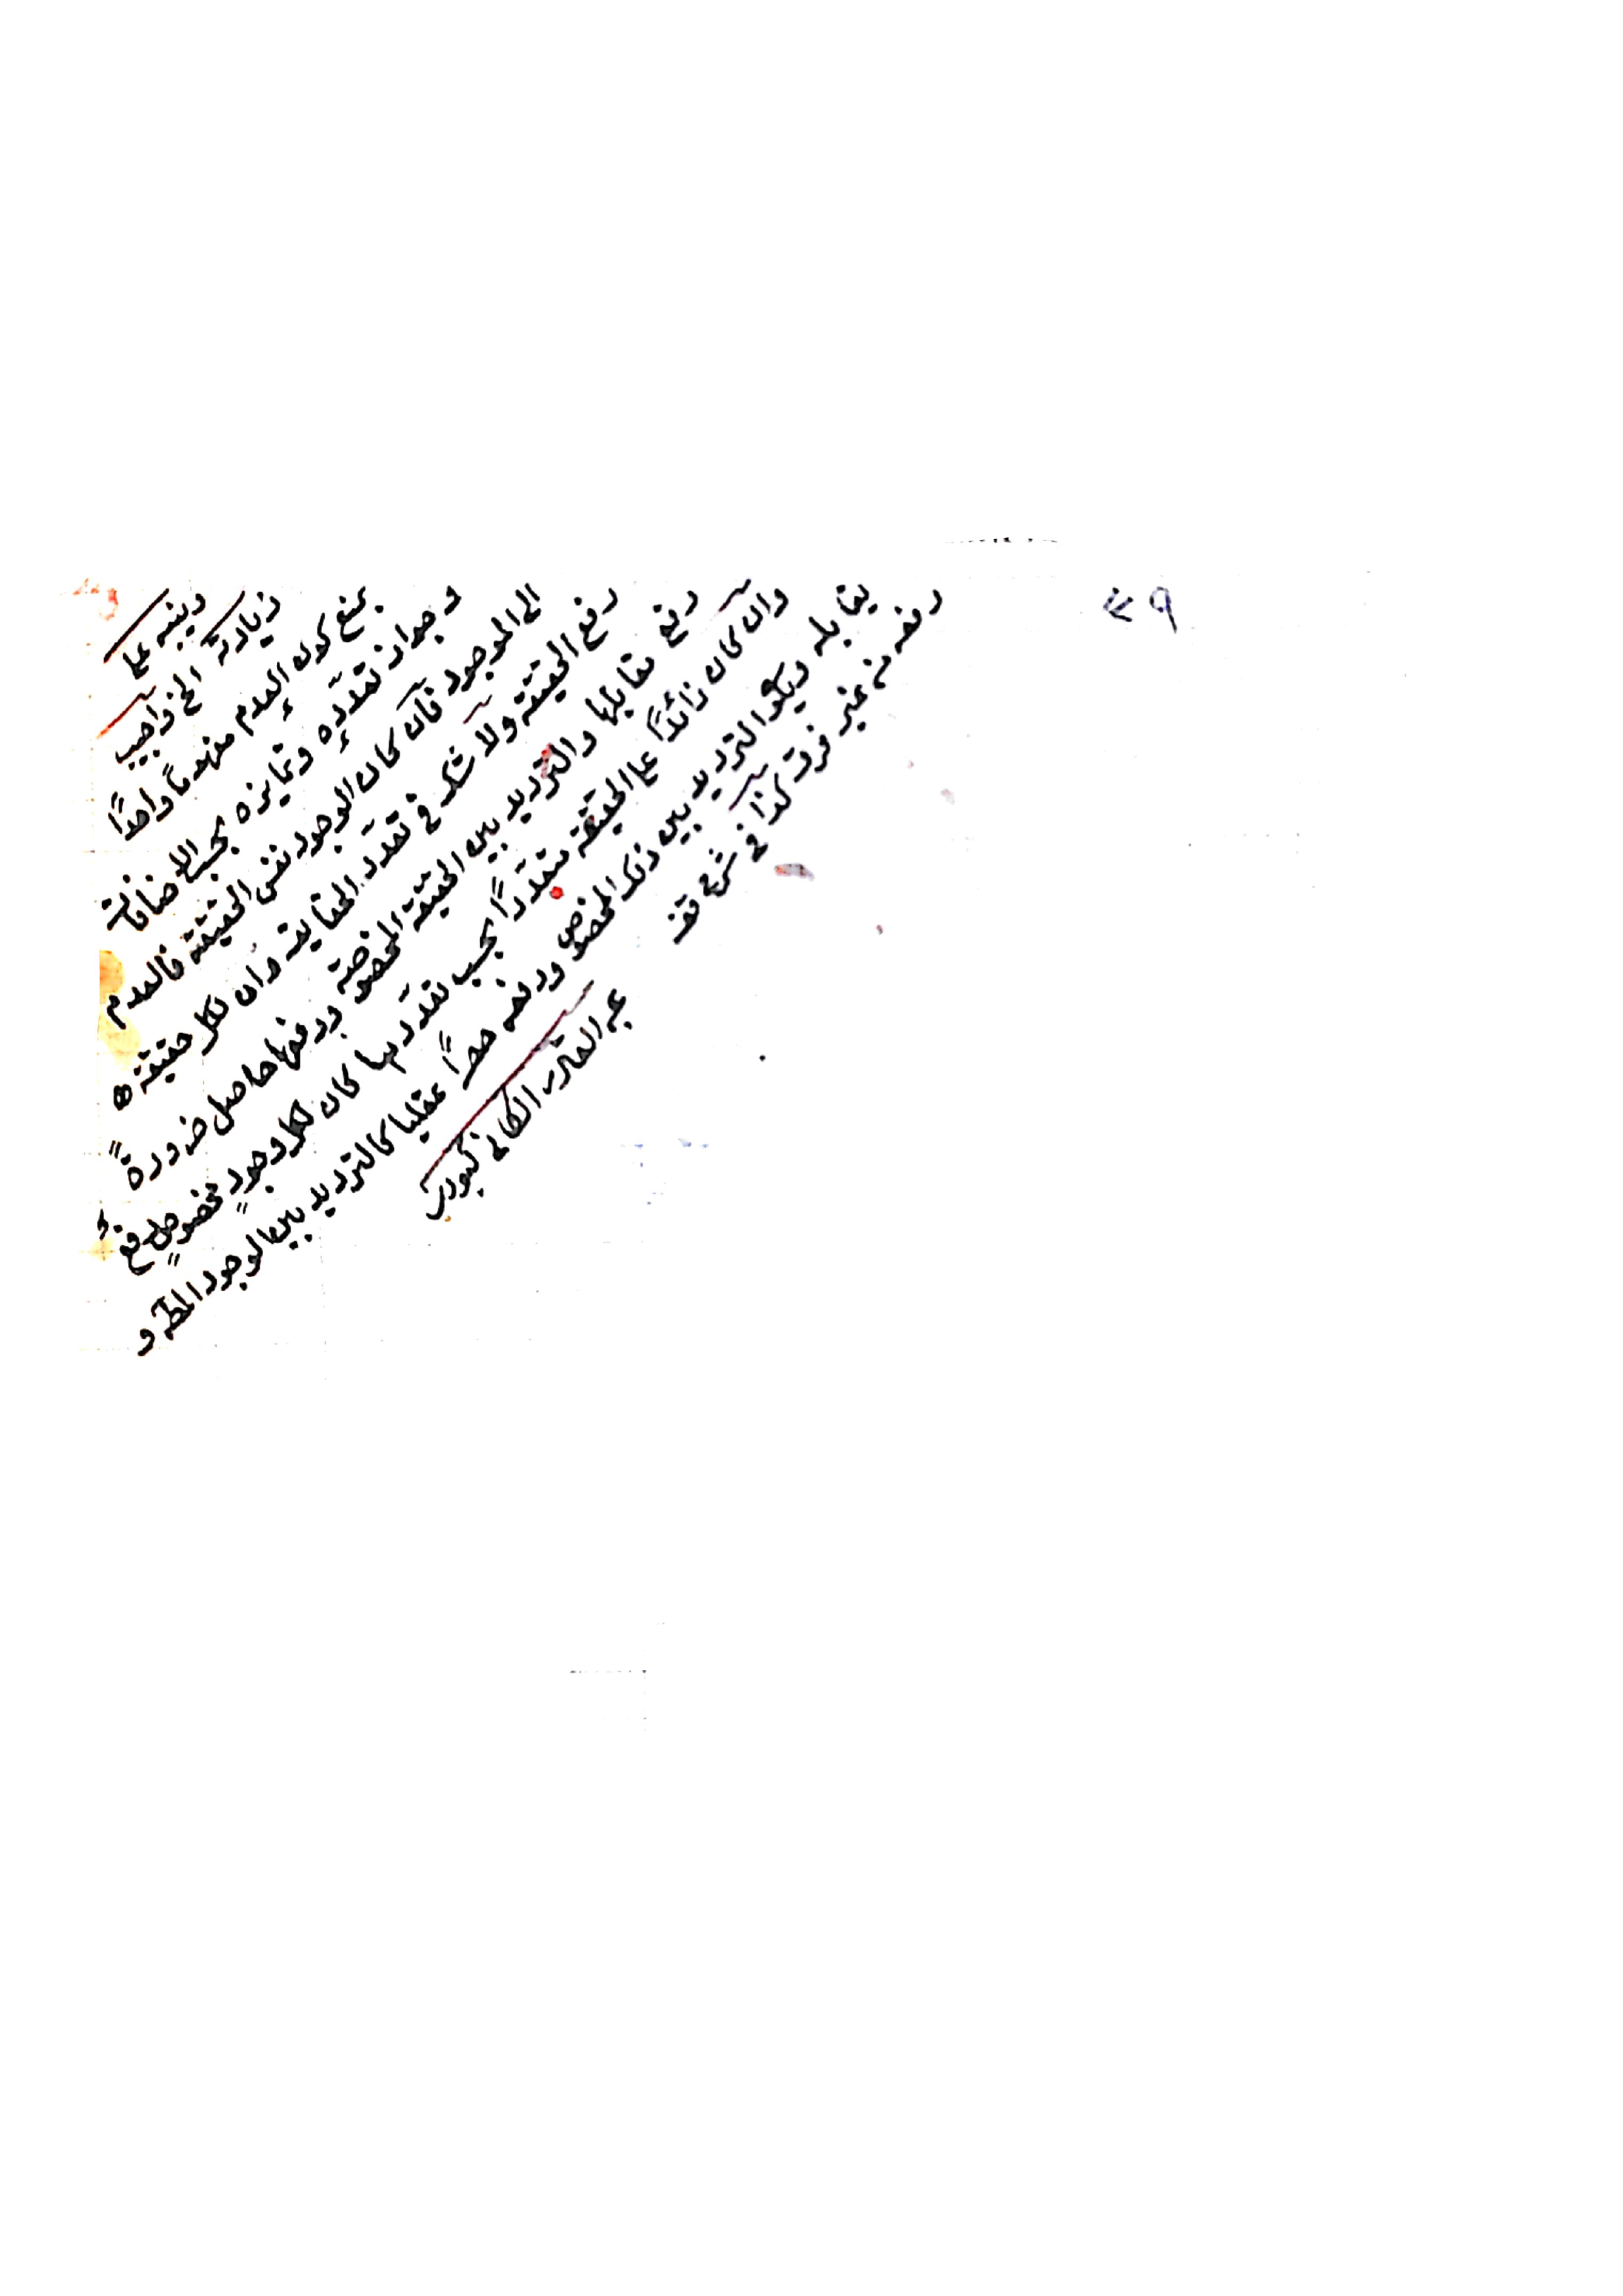 وينبه على
زيادته الخ واجيب
بمنع كون العدم مفهوماً واحداً
وجواز تعدّده وتمايزه بحسب الاضافة
الى الوجود فان كان الوجود نفس الحقيقة فالعدم
رفع الحقيقة ولا شك في تعدد الحقايق وان لكل حقيقة
رفع يقابلها والترديد بين الحقيقة المخصوصة ورفعها حاصل ضرورةً
وان كان زائداً على الحقيقة متعدداً بحسب تعددها كان لكل وجودٍ مخصوصٍ رفع
يقابله ويكون الترديد بين ذلك المخصوص ورفعه حصراً عقليا كالترديد بين الوجود المط و
رفعه من غير فرق كذا في شرح
عبد القادر الكاني كبودي
٧٩